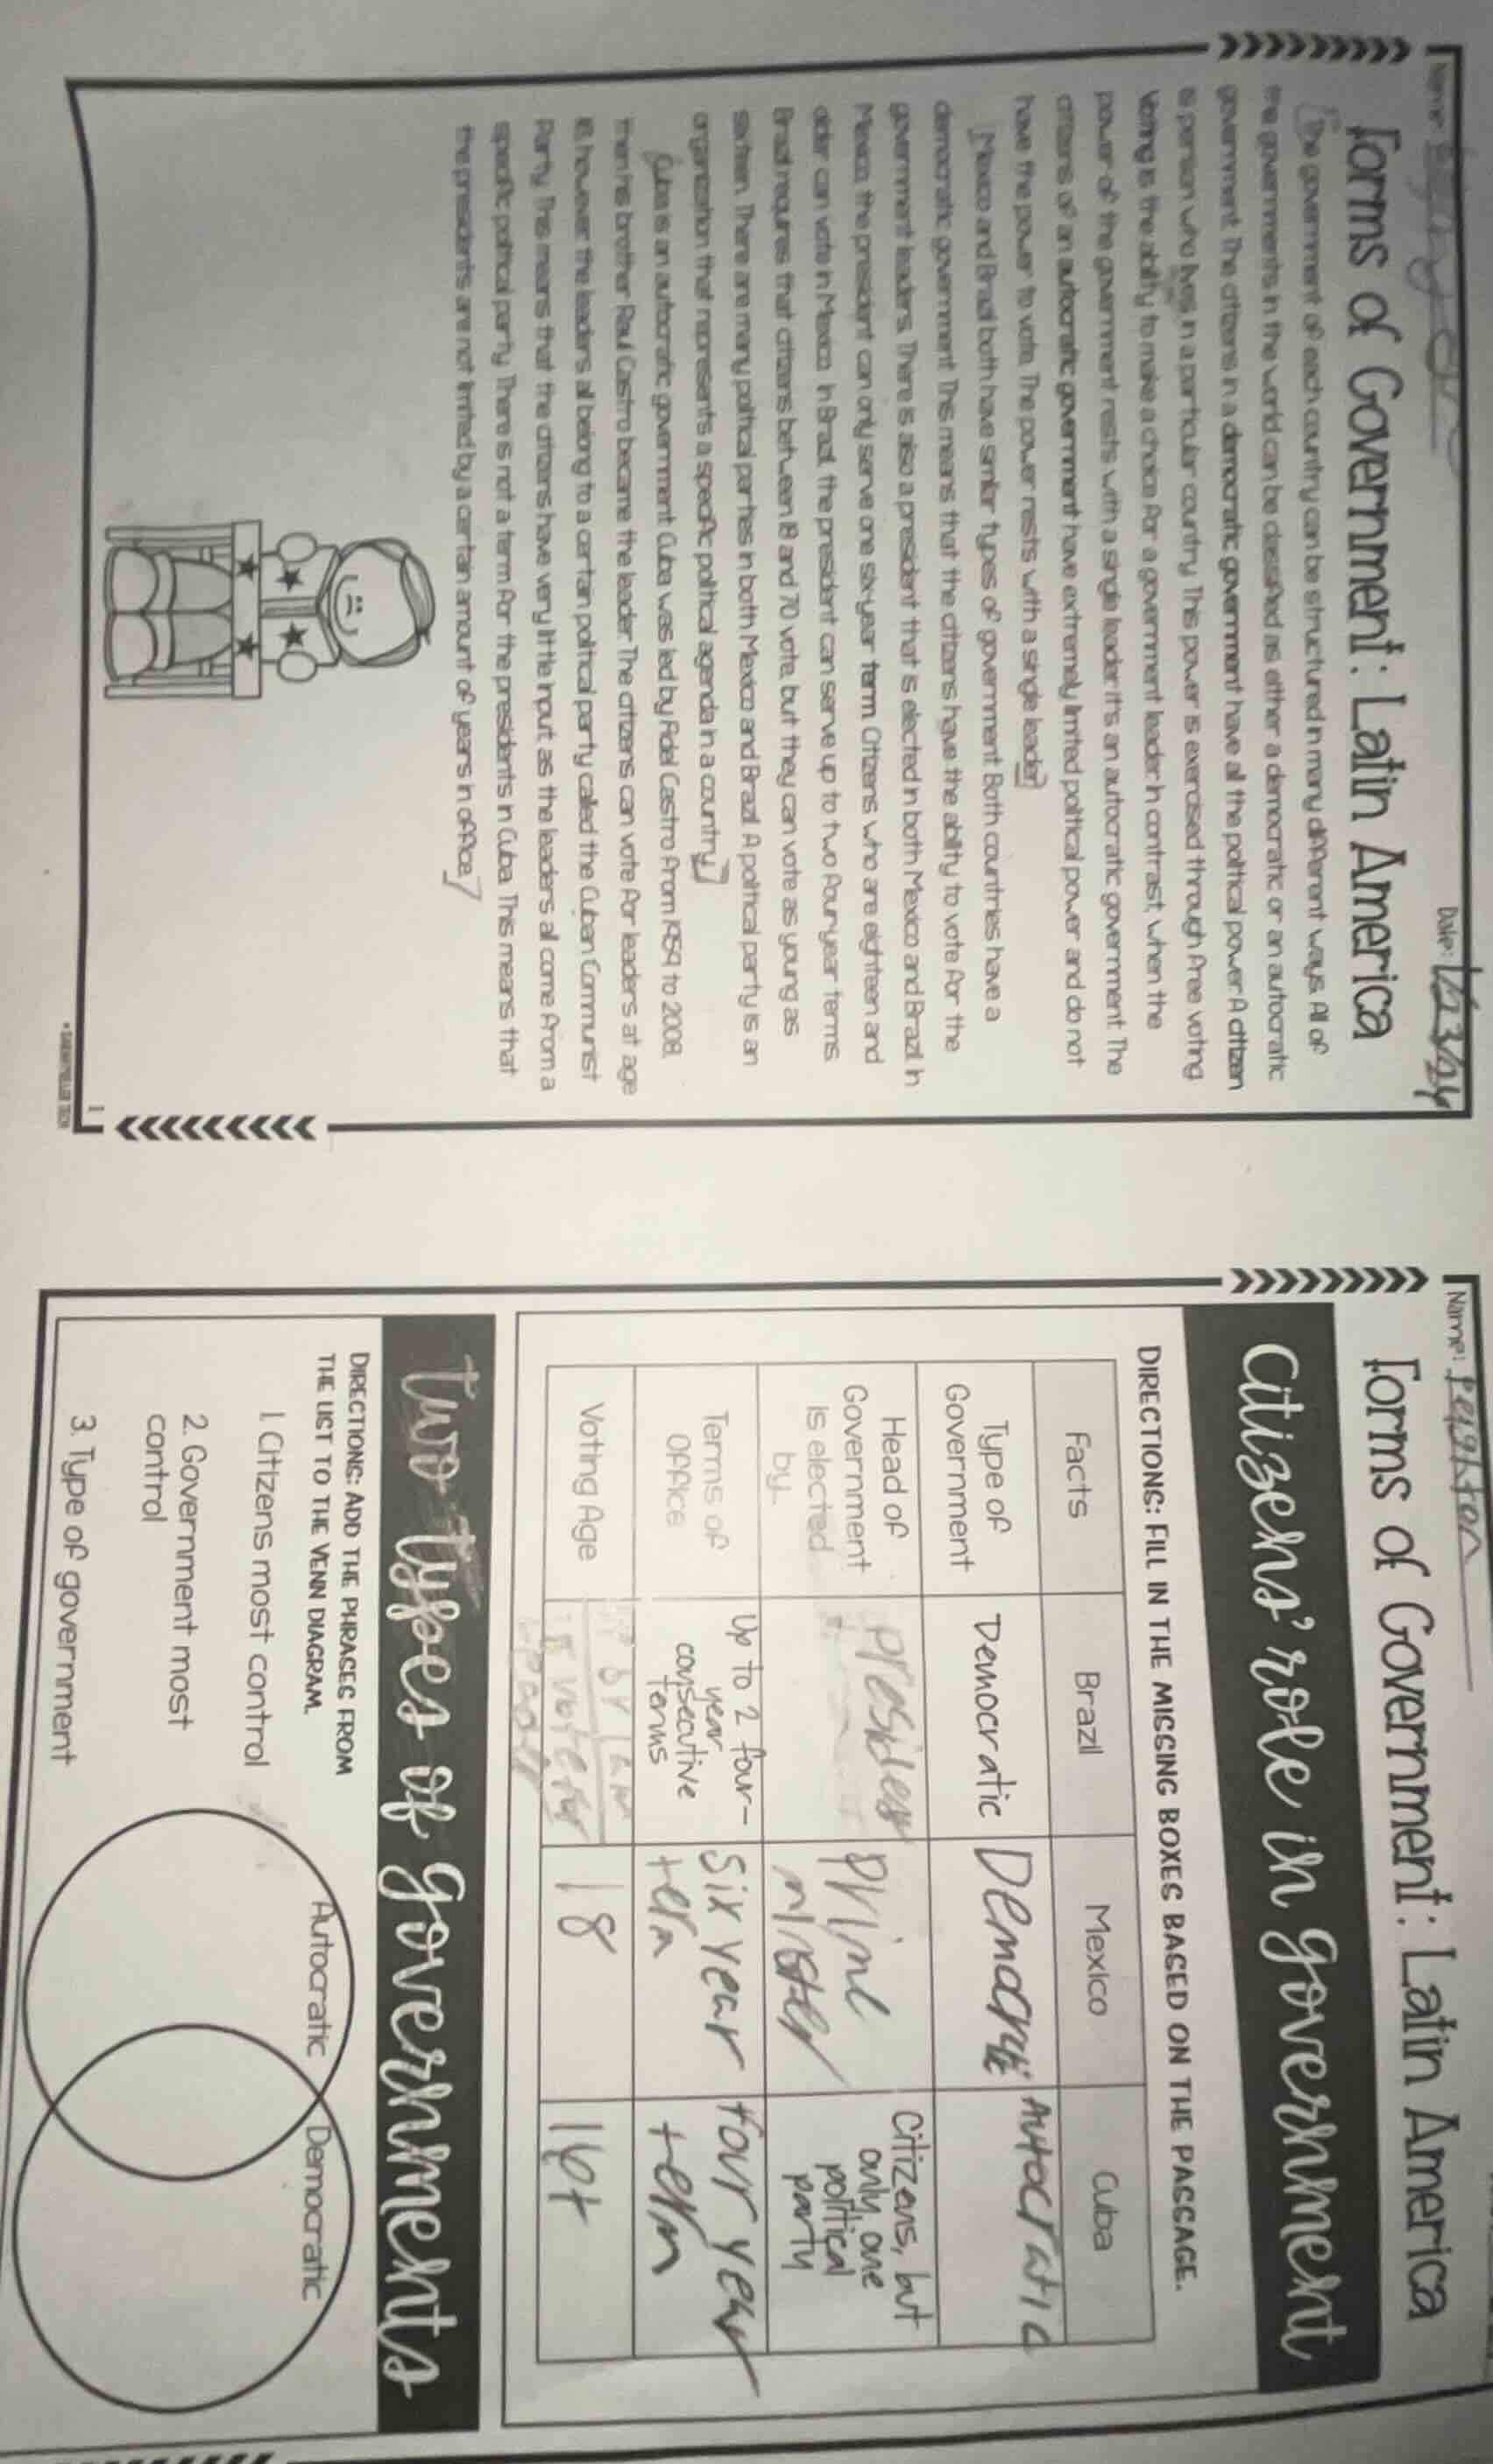 Name:
Date: 1/23/24
Forms of Government: Latin America
The government of each country can be structured in many different ways. All of
the governments in the world can be classified as either a democratic or an autocratic
government. The citizens in a democratic government have all the political power. A citizen
is person who lives in a particular country. This power is exercised through free voting.
Voting is the ability to make a choice for a government leader. In contrast, when the
power of the government rests with a single leader, it's an autocratic government. The
citizens of an autocratic government have extremely limited political power and do not
have the power to vote. The power rests with a single leader.
Mexico and Brazil both have similar types of government. Both countries have a
democratic government. This means that the citizens have the ability to vote for the
government leaders. There is also a president that is elected in both Mexico and Brazil. In
Mexico, the president can only serve one six-year term. Citizens who are eighteen and
older can vote in Mexico. In Brazil, the president can serve up to two four-year terms.
Brazil requires that citizens between 18 and 70 vote, but they can vote as young as
sixteen. There are many political parties in both Mexico and Brazil. A political party is an
organization that represents a specific political agenda in a country.
Cuba is an autocratic government. Cuba was led by Fidel Castro from 1959 to 2008,
then his brother Raul Castro became the leader. The citizens can vote for leaders at age
16, however, the leaders all belong to a certain political party called the Cuban Communist
Party. This means that the citizens have very little input as the leaders all come from a
specific political party. There is not a term for the presidents in Cuba. This means that
the presidents are not limited by a certain amount of years in office.
1
Name: Peyton
Forms of Government: Latin America
Citizens' role in government
DIRECTIONS: FILL IN THE MISSING BOXES BASED ON THE PASSAGE.
Facts Brazil Mexico Cuba
Type of
Government
Democratic
Democratic
Autocratic
Head of
Government
is elected
by...
President
Prime
minister
Citizens, but
only one
political
party
Terms of
Office
Up to 2 four-
year
consecutive
terms
Six year
term
four year
term
Voting Age
18
16+
Two types of governments
DIRECTIONS: ADD THE PHRASES FROM
THE LIST TO THE VENN DIAGRAM.
1. Citizens most control
2. Government most
control
3. Type of government
Autocratic
Democratic